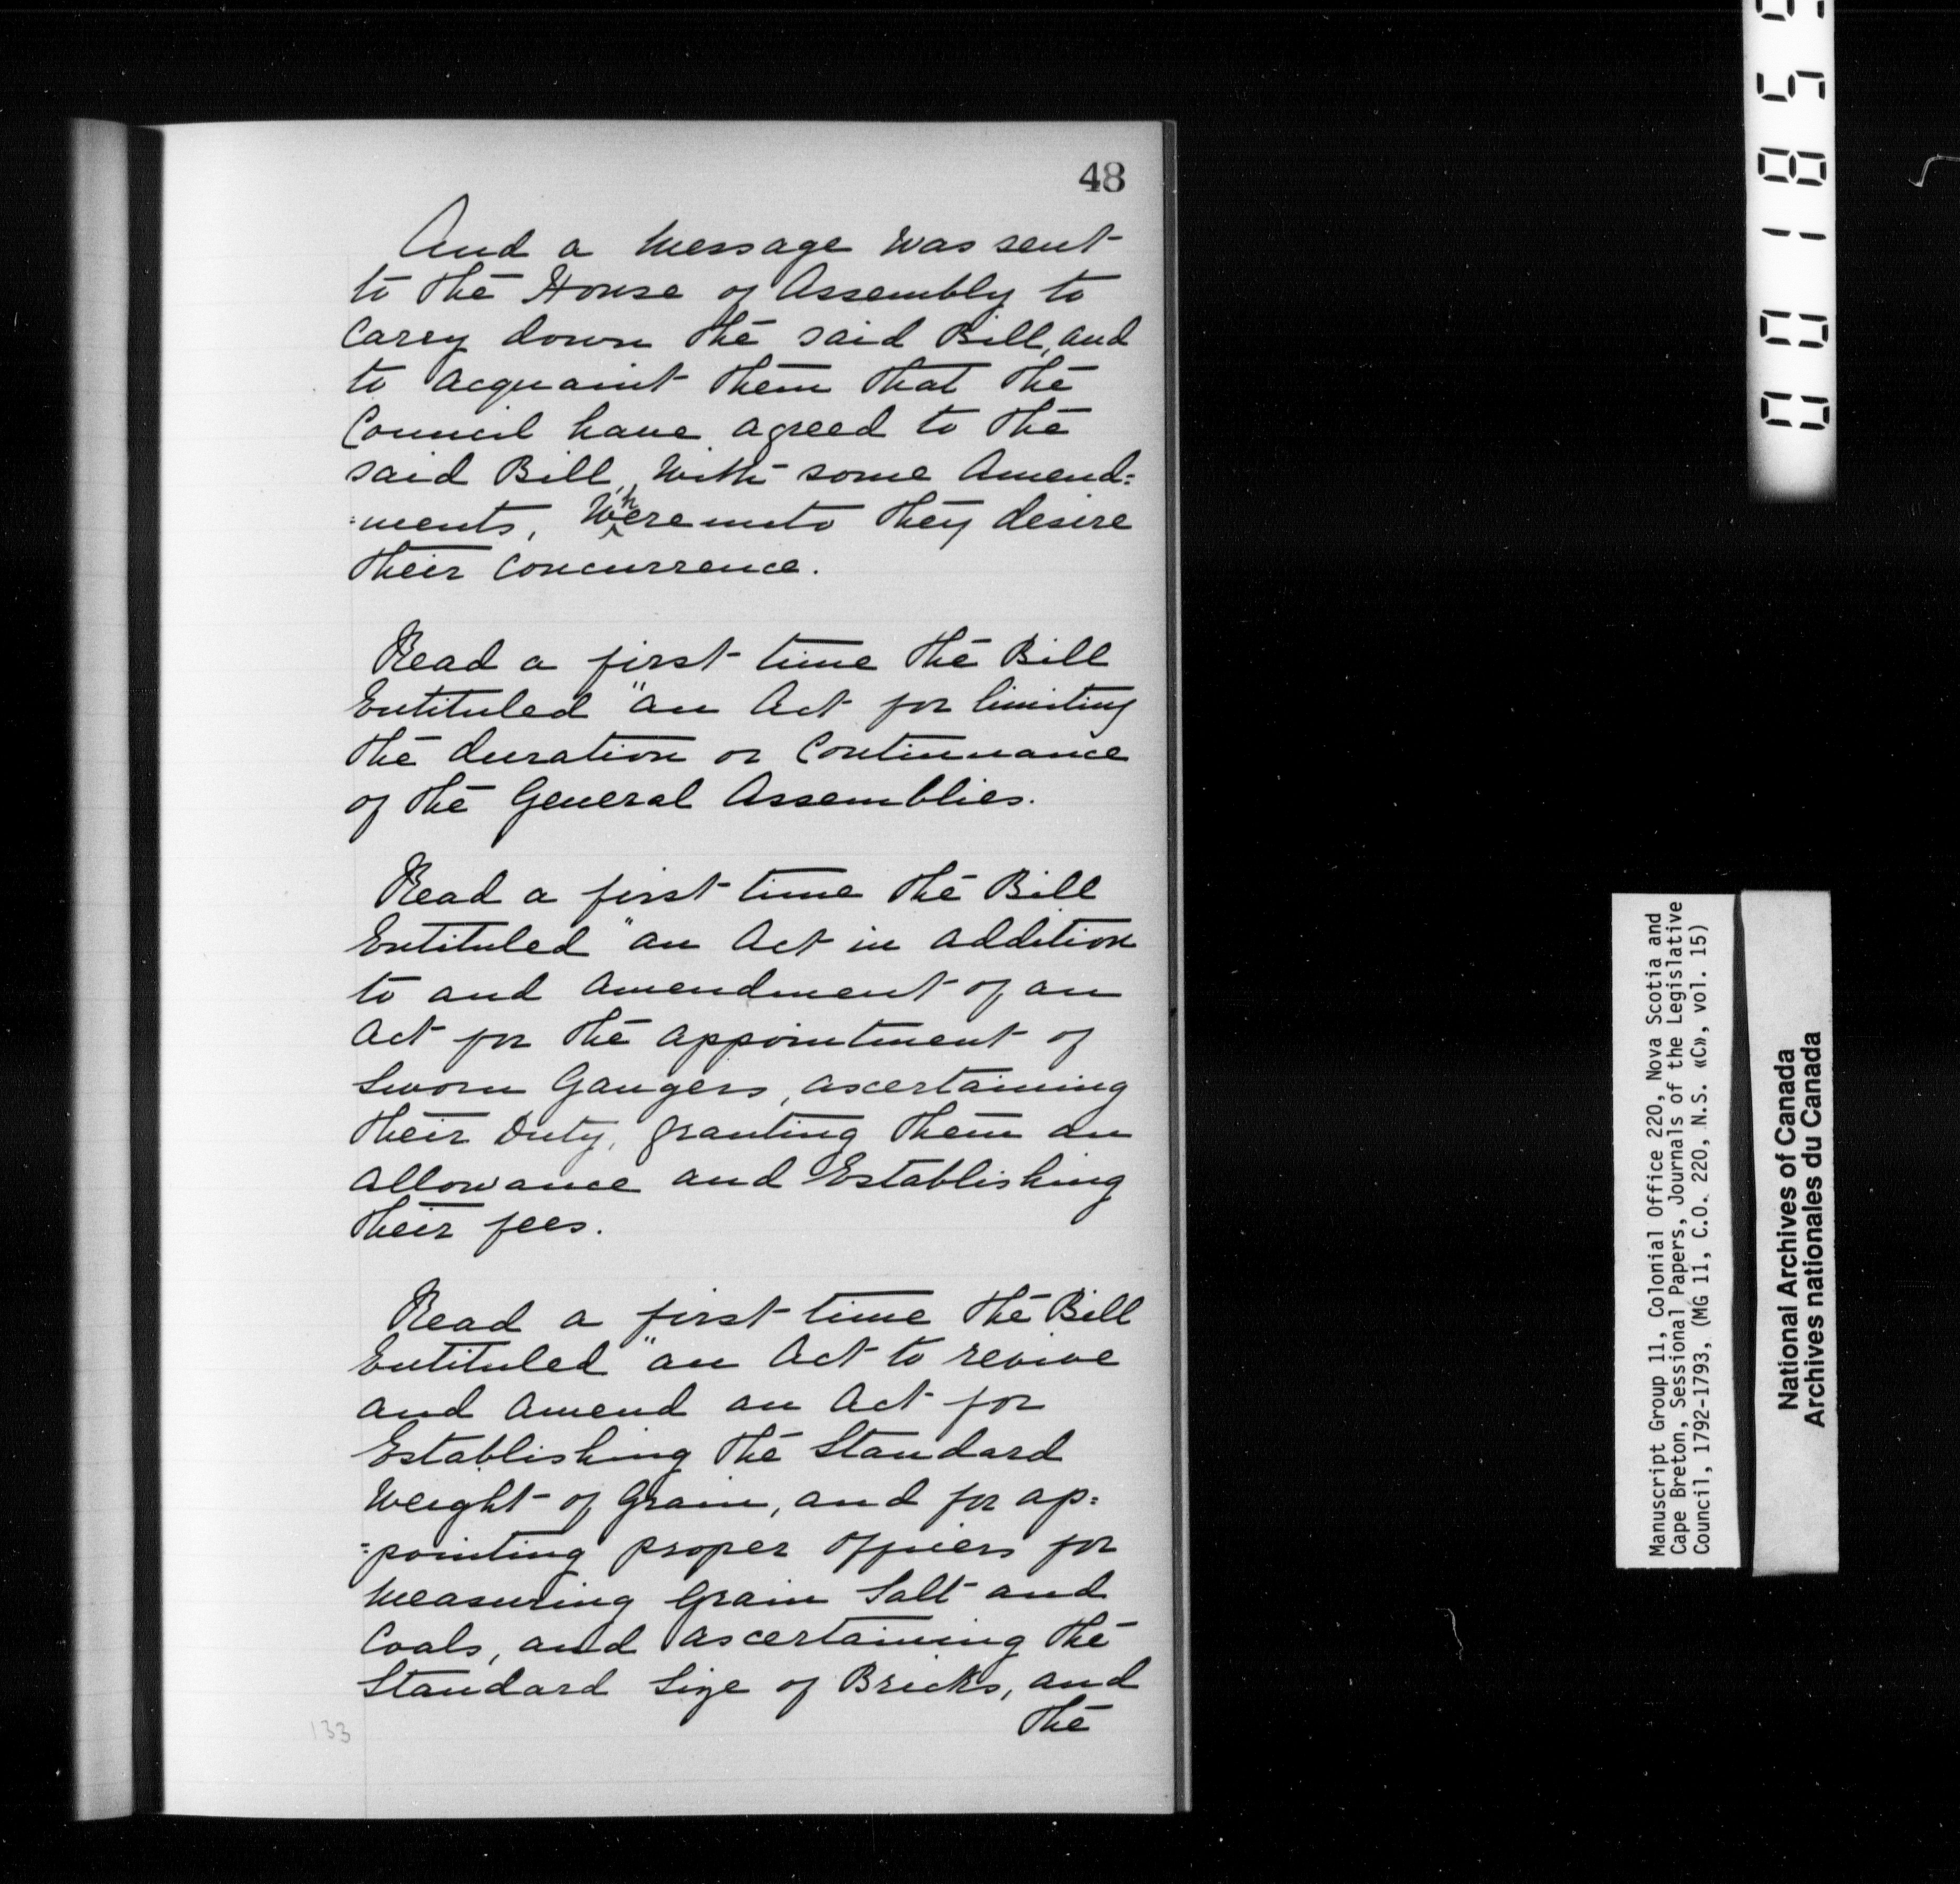 48
And a Message was sent
to the House of Assembly to
Carry down the said Bill, and
to acquaint them that the
Council have agreed to the
said Bill, with some Amend=
=ments, Whereunto they desire
their Concurrence.
Read a first time the Bill
Entituled "an Act for limiting
the duration or Continuance
of the General Assemblies.
Read a first time the Bill
Entituled "an Act in addition
to and amendment of an
Act for the appointment of
Sworn Gaugers, ascertaining
their Duty, granting them an
allowance and Establishing
their fees.
Read a first time the Bill
Entituled "an Act to revive
and amend an Act for
Establishing the Standard
Weight of Grain, and for ap=
=pointing proper Officers for
Measuring Grain Salt and
Coals, and ascertaining the
Standard Size of Bricks, and
the
133
Manuscript Group 11, Colonial Office 220, Nova Scotia and
Cape Breton, Sessional Papers, Journals of the Legislative
Council, 1792-1793, (MG 11, C.O. 220, N.S. «C», vol. 15)
National Archives of Canada
Archives nationales du Canada